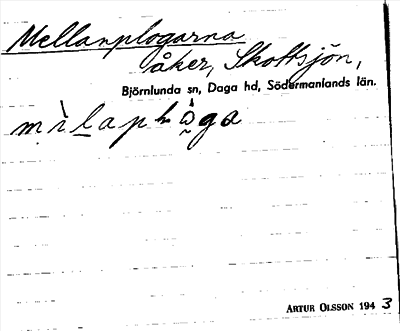 Mellanplogarna
åker, Skottsjön,
Björnlunda sn, Daga hd, Södermanlands län.
ARTUR OLSSON 194 3